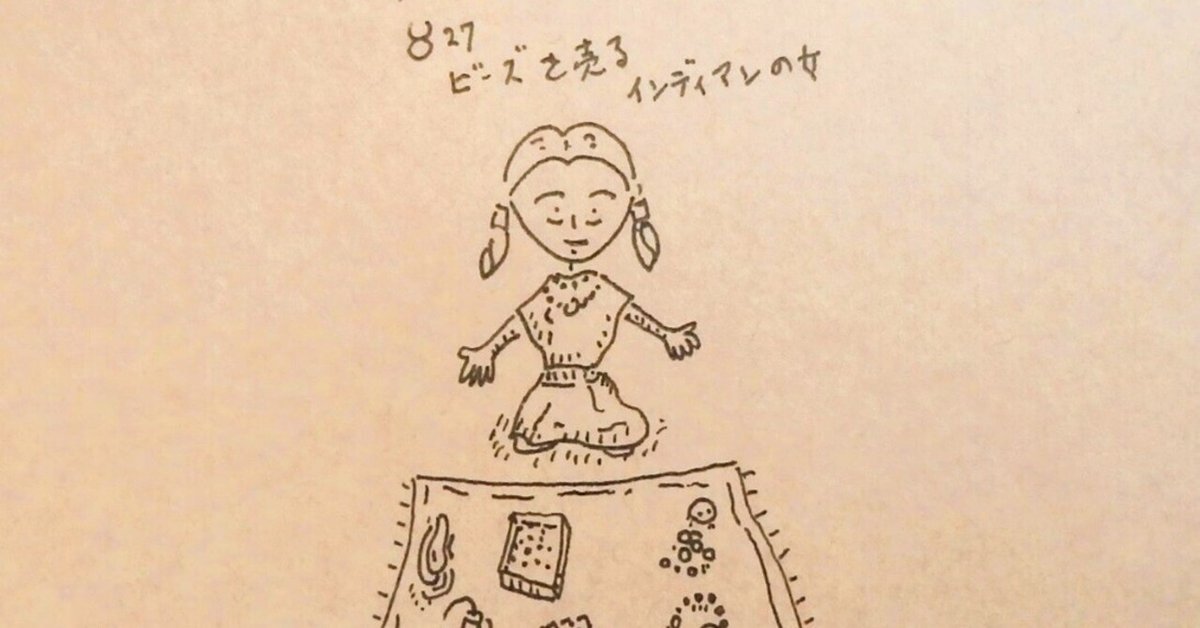 ♉27
ビーズを売る
インディアンの女